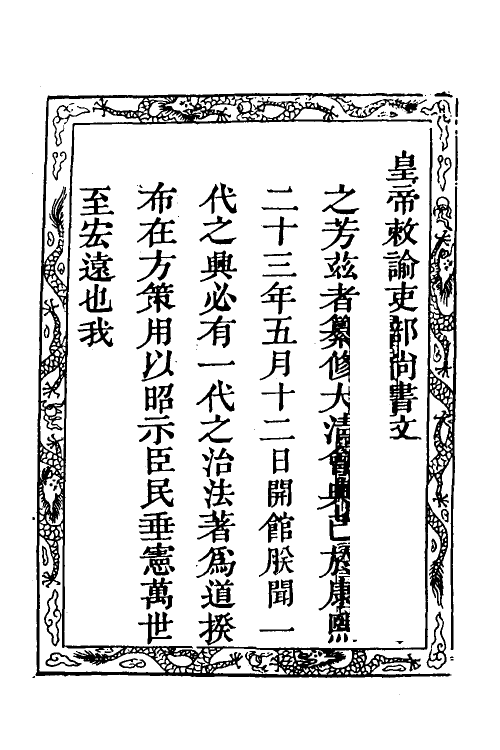 皇帝敕諭吏部尚書文
之芳茲者纂修大清會典已於康熙
二十三年五月十二日開館朕聞一
代之興必有一代之治法著爲道揆
布在方策用以昭示臣民垂憲萬世
至宏遠也我